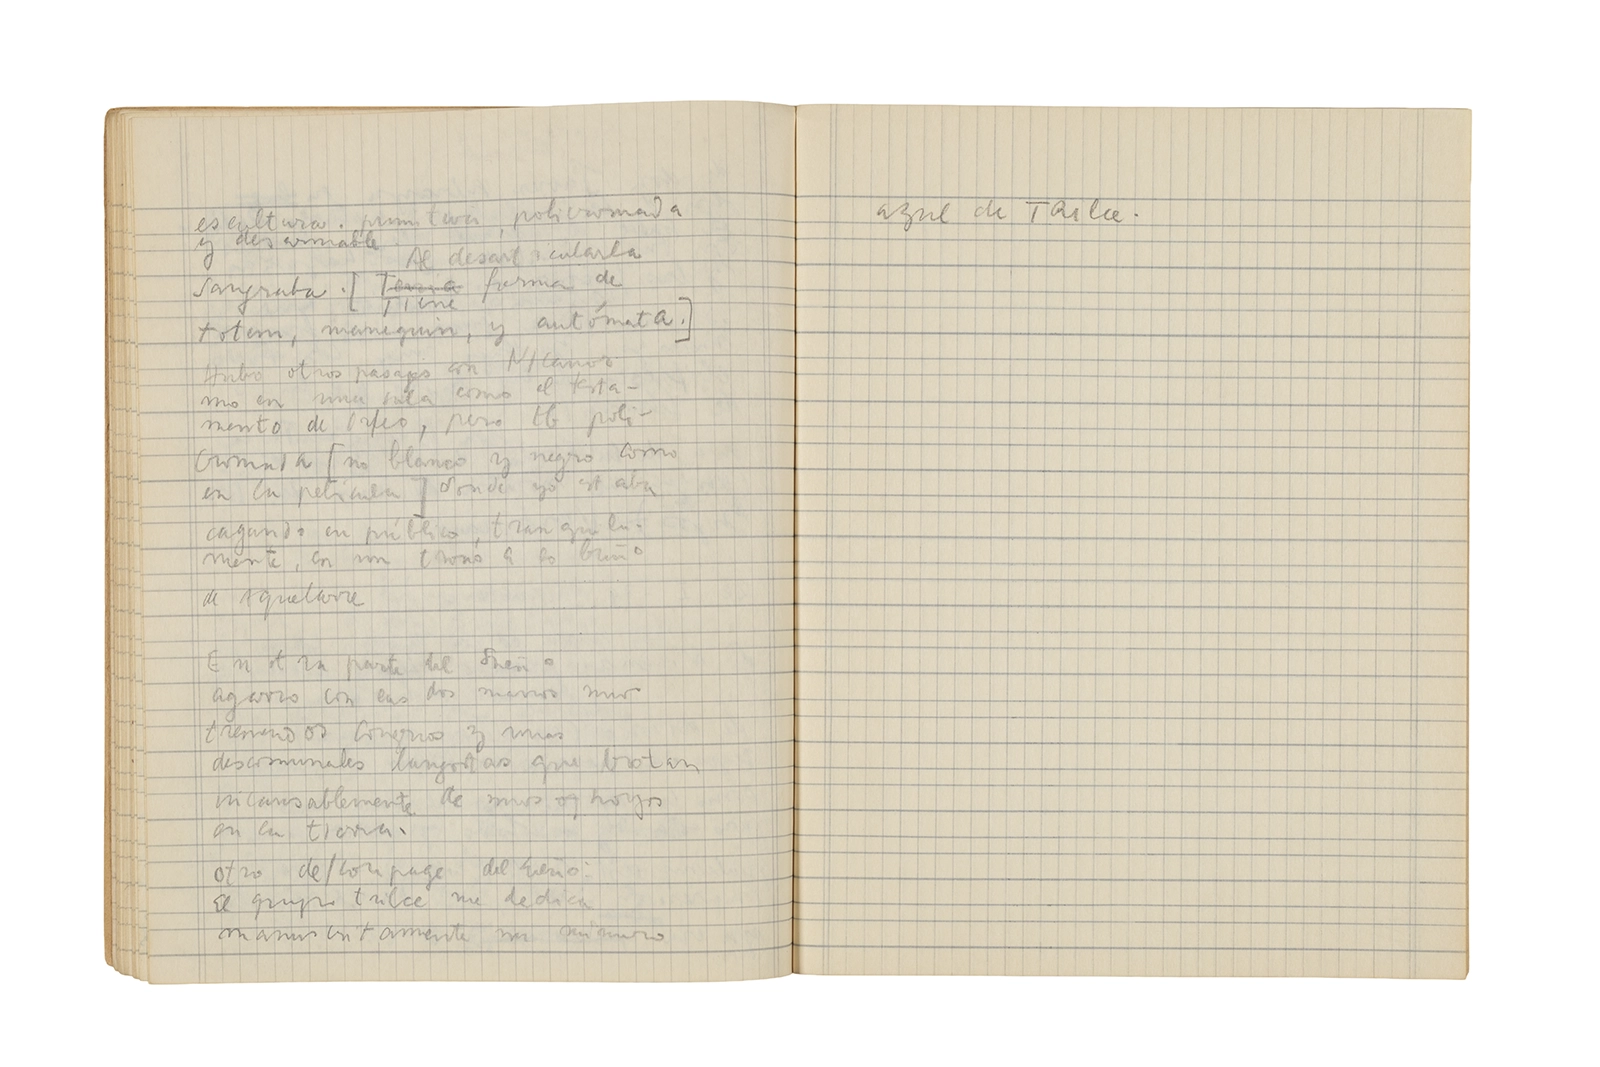 escultura. primitiva, policromada
y desarmable.
Al desarticularla
sangraba. [ Tenía forma de
Tiene
totem, manequin, y autómata.]
Hubo otros pasajes con Nicanor
en una sala como el testa-
mento de Orfeo, pero policro-
mada [no blanco y negro como
en la película] donde yo estaba
cagando en público, tranquila-
mente, en un trono
de
En otra parte del sueño
agarro con las dos manos unos
tremendos conejos y unas
descomunales langostas que brotan
incansablemente de unos hoyos
en la tierra.
otro del sueño:
El grupo trilce me dedica
manuscritamente un número
azul de Trilce.